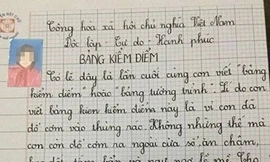 Cộng hòa xã hội chủ nghĩa Việt Nam
Độc lập Tự do Hạnh phúc
BẢNG KIỂM ĐIỂM
Có lẽ đây là lần cuối cùng con viết "bảng
kiểm điểm" hoặc "bảng tường trình". Lí do con
viết bảng kiểm điểm này là vì con đã
đổ cơm vào thùng rác. Không những thế mà
con còn đổ cơm ra ngoài cửa sổ, ăn chậm,